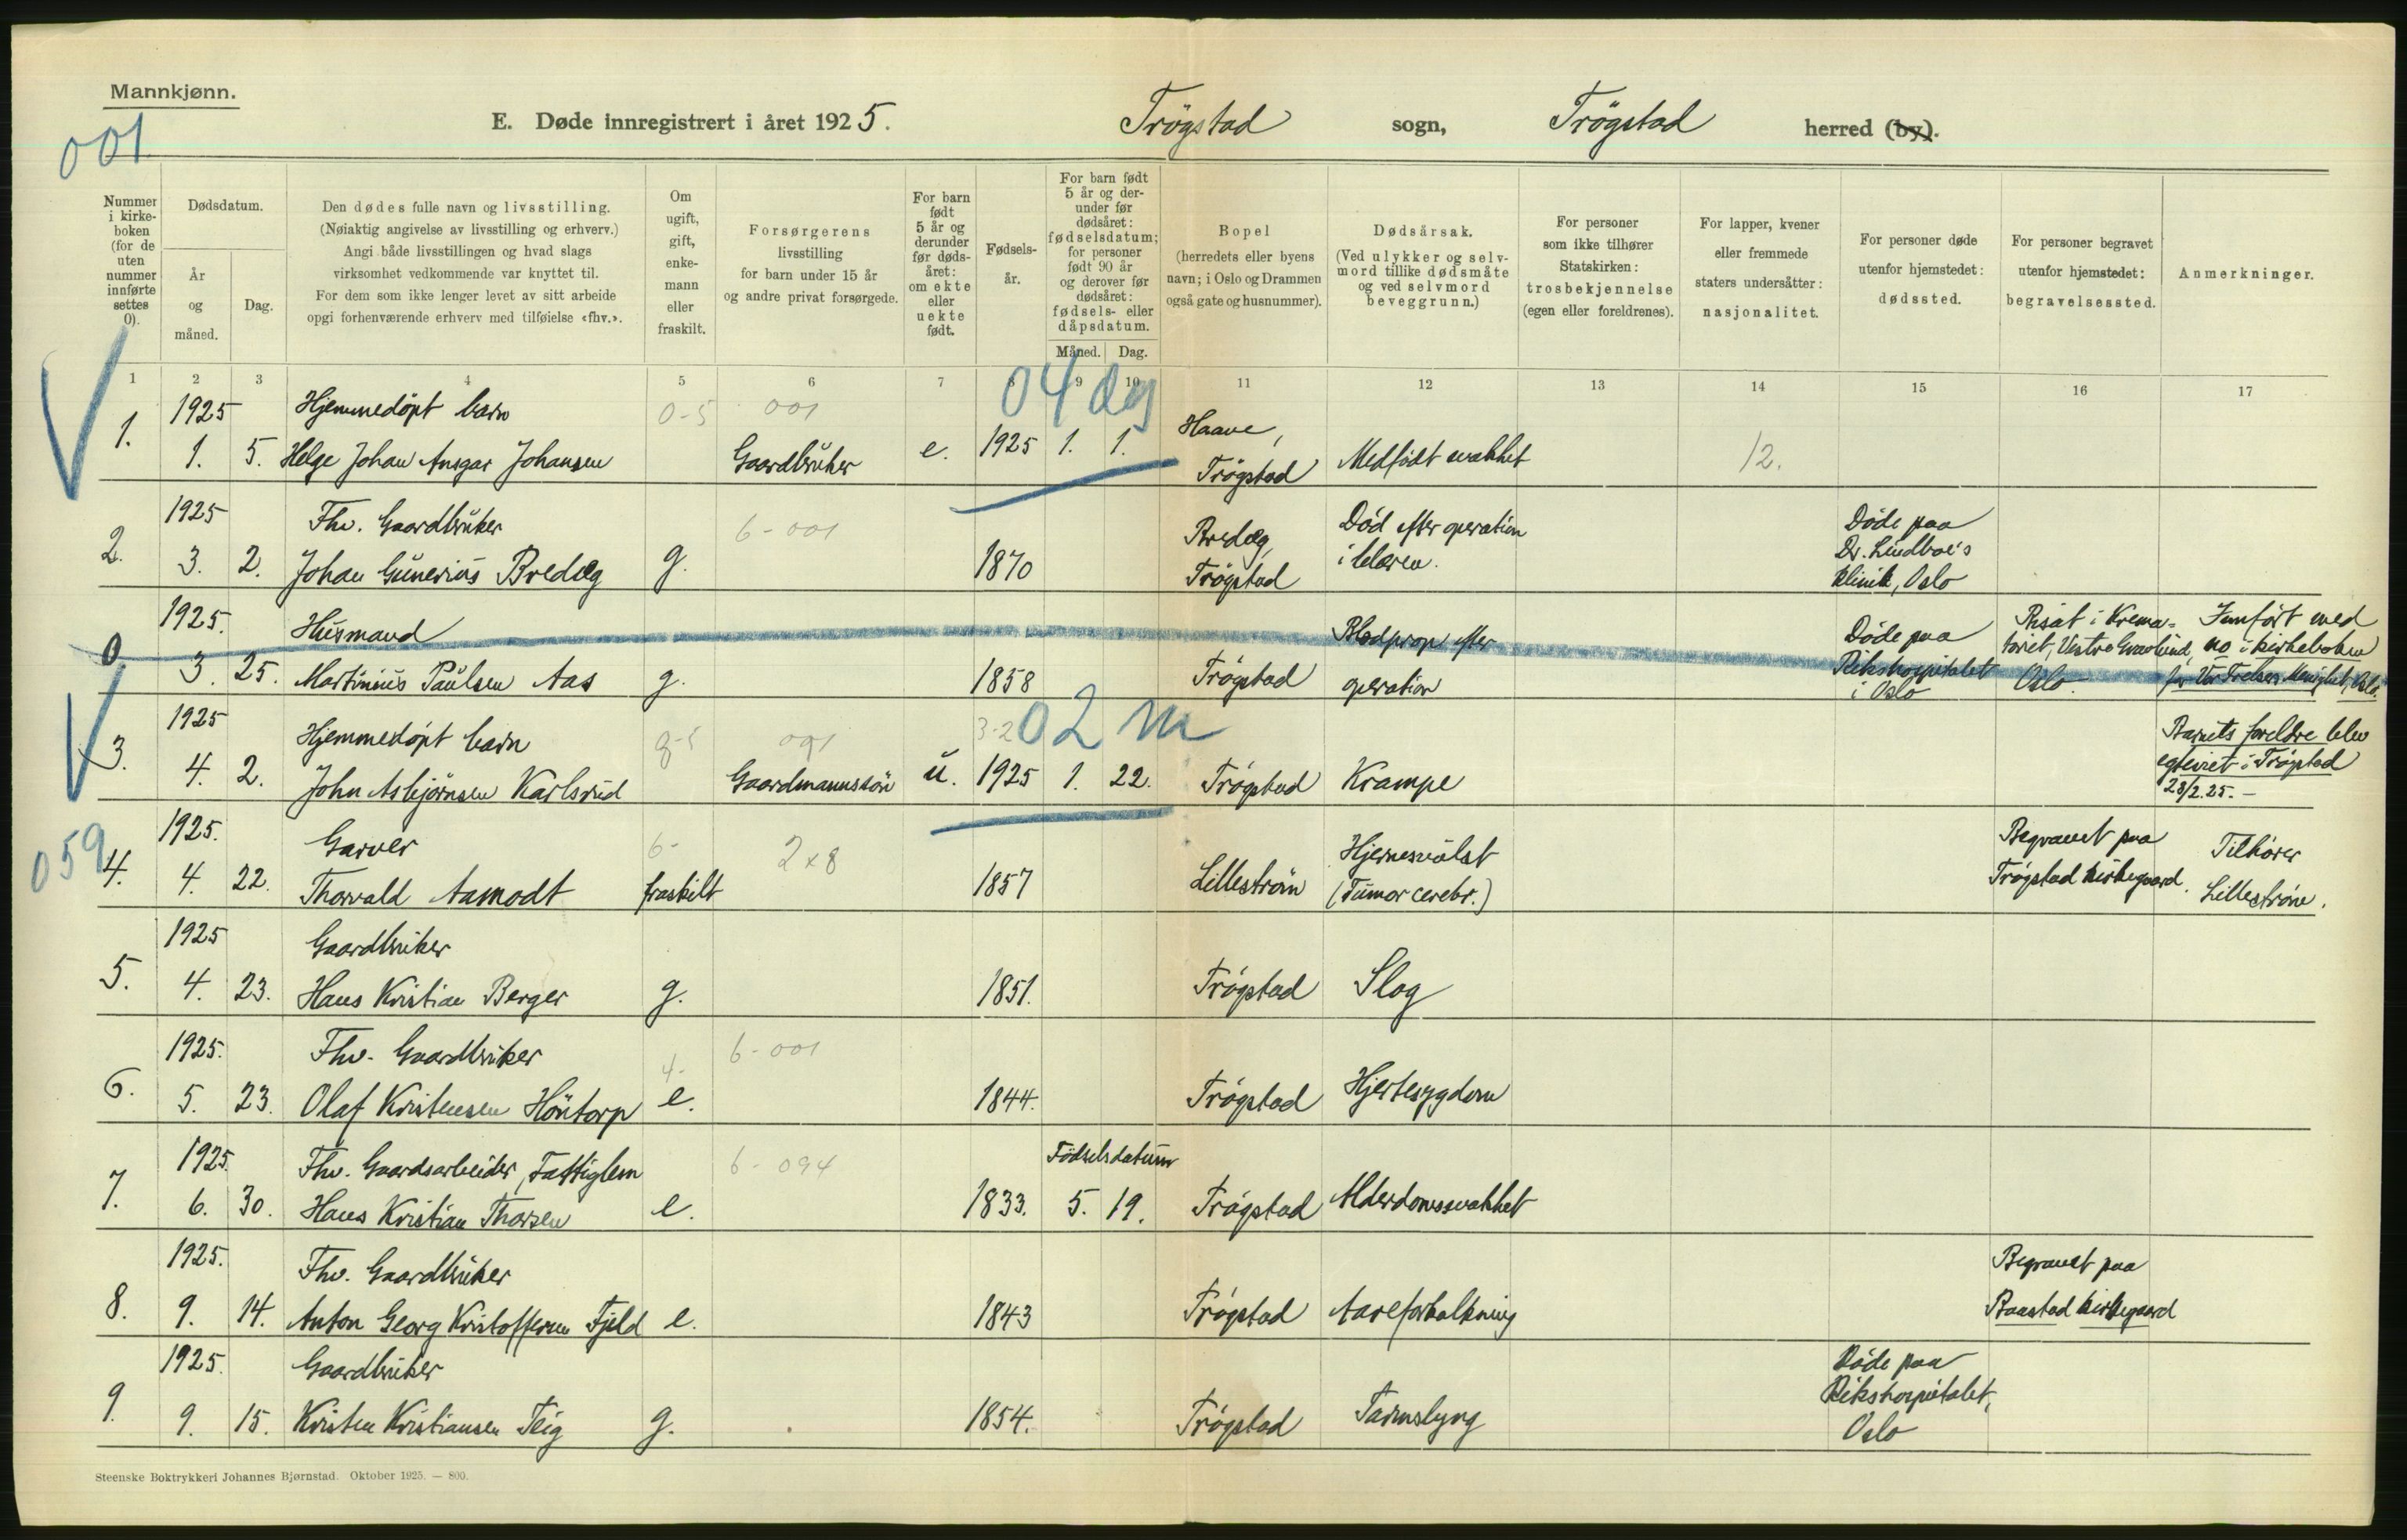 Mannkjønn.
001
E. Døde innregistrert i året 1925. Trögstad sogn, Trögstad herred (by).
Nummer i kirke-boken (for de uten nummer innførte settes 0).
Dødsdatum.
År og måned.
Dag.
Den dødes fulle navn og livsstilling.
(Nøiaktig angivelse av livsstilling og erhverv.)
Angi både livsstillingen og hvad slags
virksomhet vedkommende var knyttet til.
For dem som ikke lenger levet av sitt arbeide
opgi forhenværende erhverv med tilføielse «fhv.».
Om ugift, gift, enke-mann eller fraskilt.
Forsørgerens
livsstilling
for barn under 15 år
og andre privat forsørgede.
For barn født 5 år og derunder før døds-året: om ekte eller uekte født.
Fødsels-år.
For barn født 5 år og der-under før dødsåret: fødselsdatum; for personer født 90 år og derover før dødsåret: fødsels- eller dåpsdatum.
Måned. Dag.
Bopel
(herredets eller byens
navn; i Oslo og Drammen
også gate og husnummer).
Dødsårsak.
(Ved ulykker og selv-
mord tillike dødsmåte
og ved selvmord
beveggrunn.)
For personer
som ikke tilhører
Statskirken:
trosbekjennelse
(egen eller foreldrenes).
For lapper, kvener
eller fremmede
staters undersåtter:
nasjonalitet.
For personer døde
utenfor hjemstedet:
dødssted.
For personer begravet
utenfor hjemstedet:
begravelsessted.
Anmerkninger.
1 2 3 4 5 6 7 8 9 10 11 12 13 14 15 16 17
04 dg
1925 Hjemmedöpt barn 0-5 001 Haave,
1. 1. 5. Helge Johan Ansgar Johansen Gaardbrüker e. 1925 1. 1. Trögstad Medfödt svakhet 12.
1925 Fhv. Gaardbrüker 6-001 Bredeg, Död efter operation Döde paa
2. 3. 2. Johan Günerius Bredeg g. 1870 Trögstad i blæren. Dr. Lindboe's
klinik, Oslo
1925. Hüsmand Blodprop efter Döde paa Bisat i Krema- Innfört med
0 3. 25. Martinius Paülsen Aas g. 1858 Trögstad operation Rikshospitalet toriet, Vestre Gravlünd, no i kirkeboken
i Oslo Oslo. for Vor Frelsers Menighet, Oslo.
1925 Hjemmedöpt barn 0-5 001 3-2 02 m Barnets foreldre blev
3. 4. 2. John Asbjørnsen Karlsrüd Gaardmannssön ü. 1925 1. 22. Trögstad Krampe egteviet i Trögstad
28/2.25.-
059
1925. Garver 6- 2x8 Hjernesvülst Begravet paa Tilhörer
4. 4. 22. Thorvald Aamodt fraskilt 1857 Lilleström (Tümor cerebr.) Trögstad kirkegaard. Lilleström.
1925 Gaardbrüker
5. 4. 23. Hans Kristian Berger g. 1851. Trögstad Slag
1925. Fhv. Gaardbrüker 4- 6-001
6. 5. 23. Olaf Kristensen Höntorp e. 1844. Trögstad Hjertesygdom
1925. Fhv. Gaardsarbeider, Fattiglem 6-094 Födselsdatüm
7. 6. 30. Hans Kristian Thorsen e. 1833. 5. 19. Trögstad Alderdomssvakhet
1925. Fhv. Gaardbrüker Begravet paa
8. 9. 14. Anton Georg Kristoffersen Fjeld e. 1843 Trögstad Aareforkalkning Baastad kirkegaard
1925. Gaardbrüker Döde paa
9. 9. 15. Kristen Kristiansen Teig g. 1854. Trögstad Tarmslyng Rikshospitalet,
Oslo
Steenske Boktrykkeri Johannes Bjørnstad. Oktober 1925. — 800.